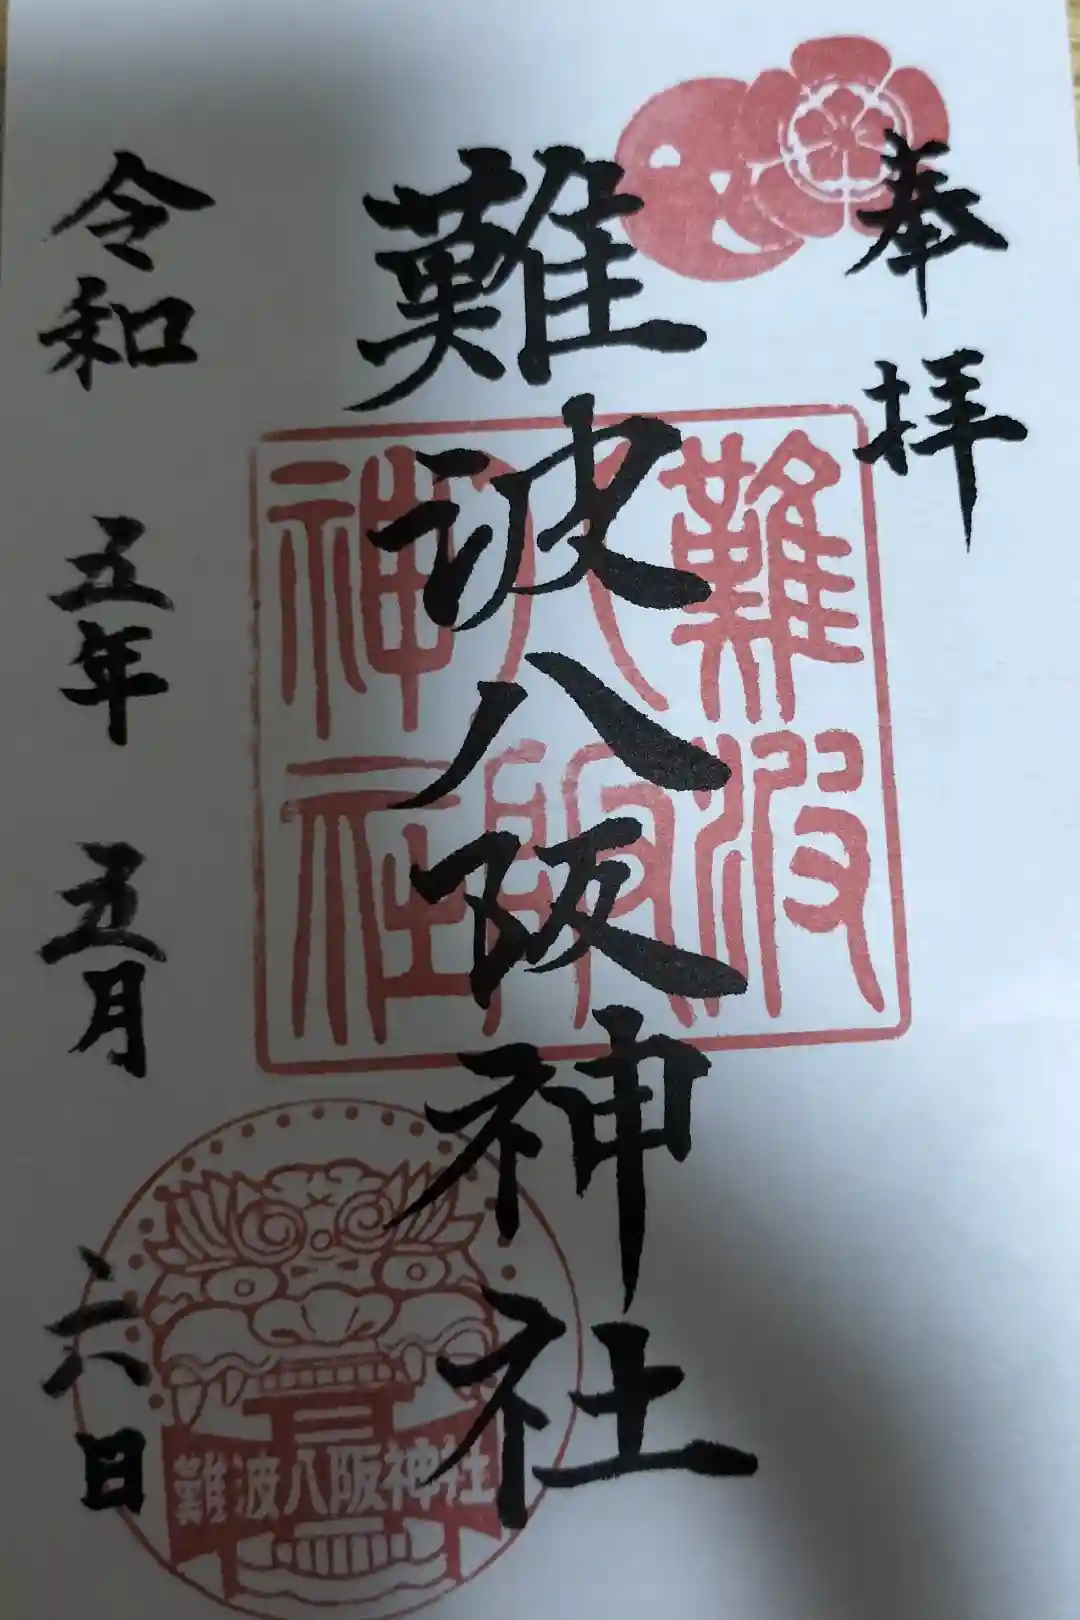 奉拝
難波八阪神社
難波
八阪
神社
令和五年五月二六日
難波八阪神社